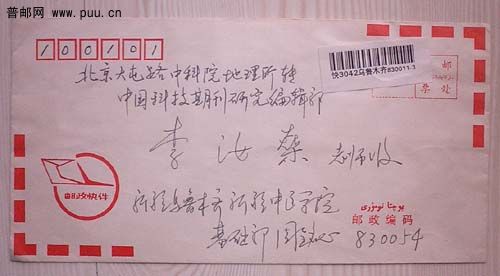 普邮网
www.puu.cn
100101
北京大屯路中科院地理所转
中国科技期刊研究编辑部
快3042乌鲁木齐830011-3
邮
票 处
李汝燊 老师收
邮政快件
新疆乌鲁木齐新疆中医学院
基础部
پوچتا نومۇرى
邮政编码
830054